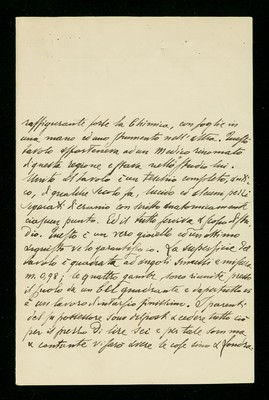 raffigurante forse la Chimica, con foglie in
una mano ed uno strumento nell'altra. Questo
tavolo apparteneva ad un Medico rinomato
di questa regione e stava nello studio di lui.
Unito al tavolo è un teschio completo, anti-
co, di qualche secolo fa, lucido ed alcuni pezzi
segati di cranio con scritto anatomicamente
ciascun punto. Ed il tutto serviva a scopo di stu-
dio. Questo è un vero gioiello ed un ottimo
acquisto ve lo garantisco. La superficie del
tavolo è quadrata ad angoli smussi e misura
m. 0,98; le quattro gambe sono riunite presso
il suolo da un bel quadrante e dapertutto vi
è un lavoro d'intarsio finissimo. I parenti
del fu possessore sono disposti a cedere tutto ciò
per il prezzo di lire Sei e per tale somma
a contante vi farò avere le cose sino a Londra.